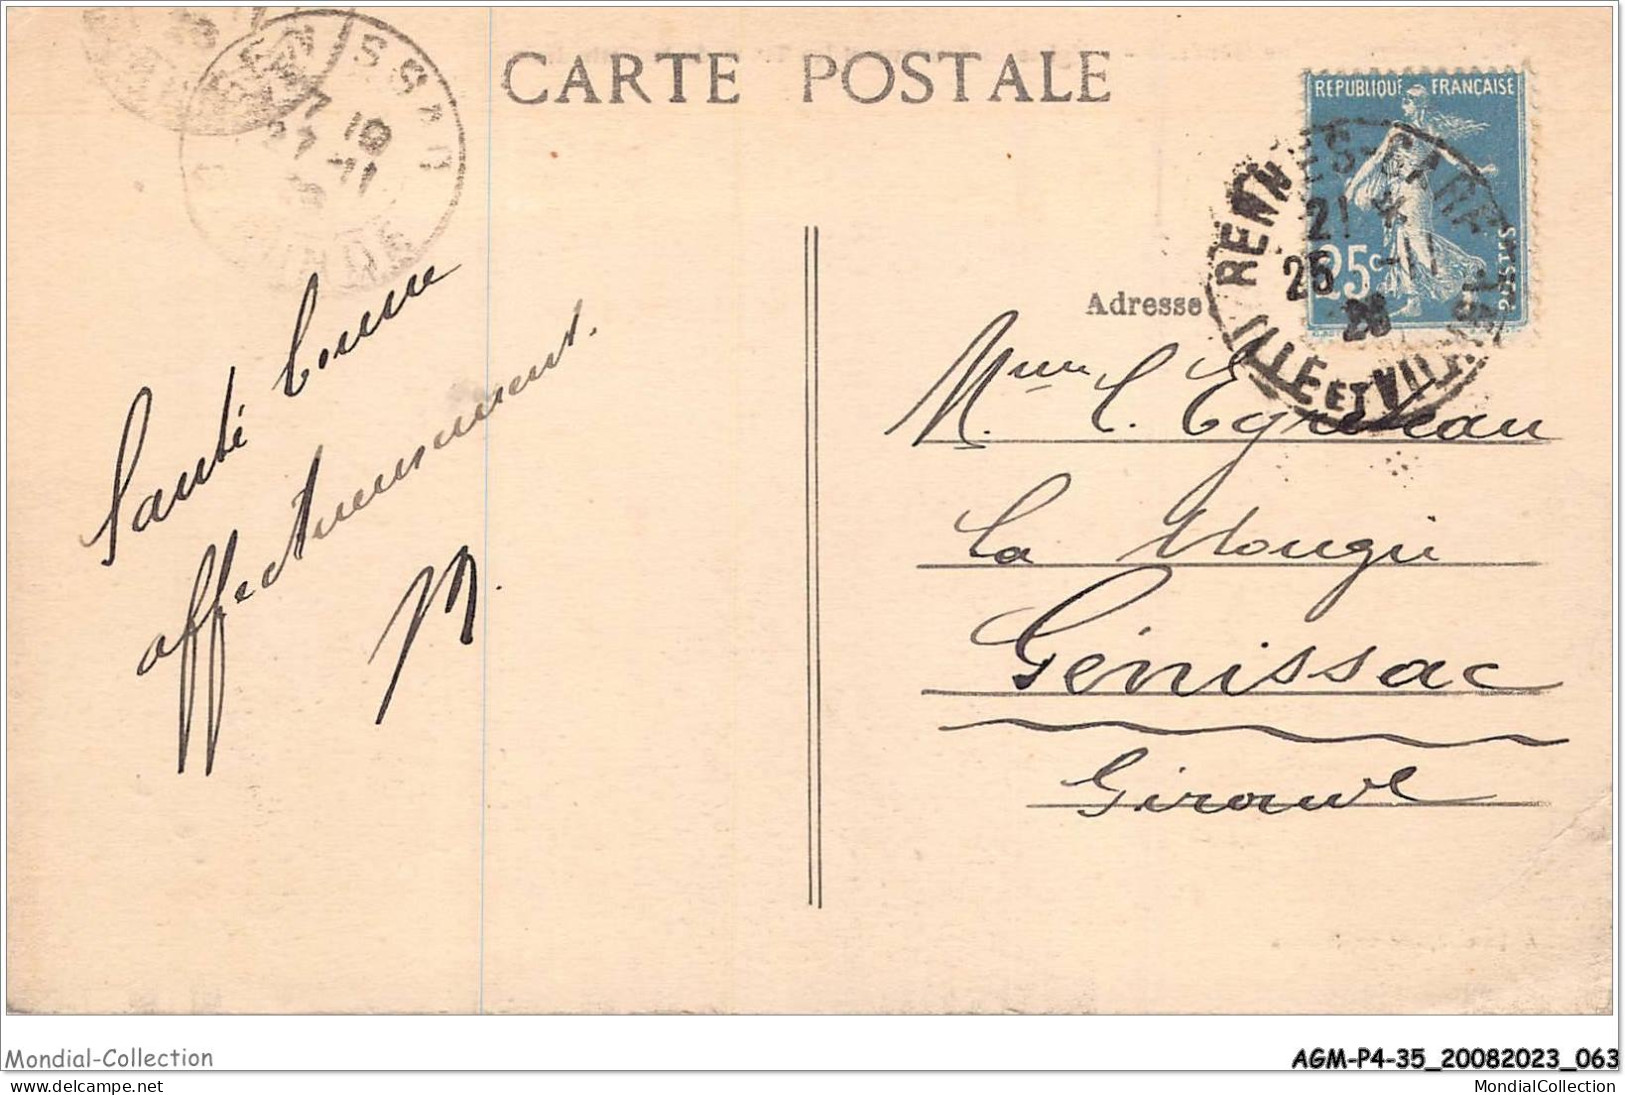 CARTE POSTALE
REPUBLIQUE FRANÇAISE
25c
POSTES
RENNES-GARE
21
25 -11
26
ILLE ET VILAINE
GENISSAC
10
27 -11
GIRONDE
Santé bonne
affectueusement.
M.
Adresse
Mme
La
Génissac
Gironde
Mondial-Collection
AGM-P4-35_20082023_063
delcampe.net
MondialCollection